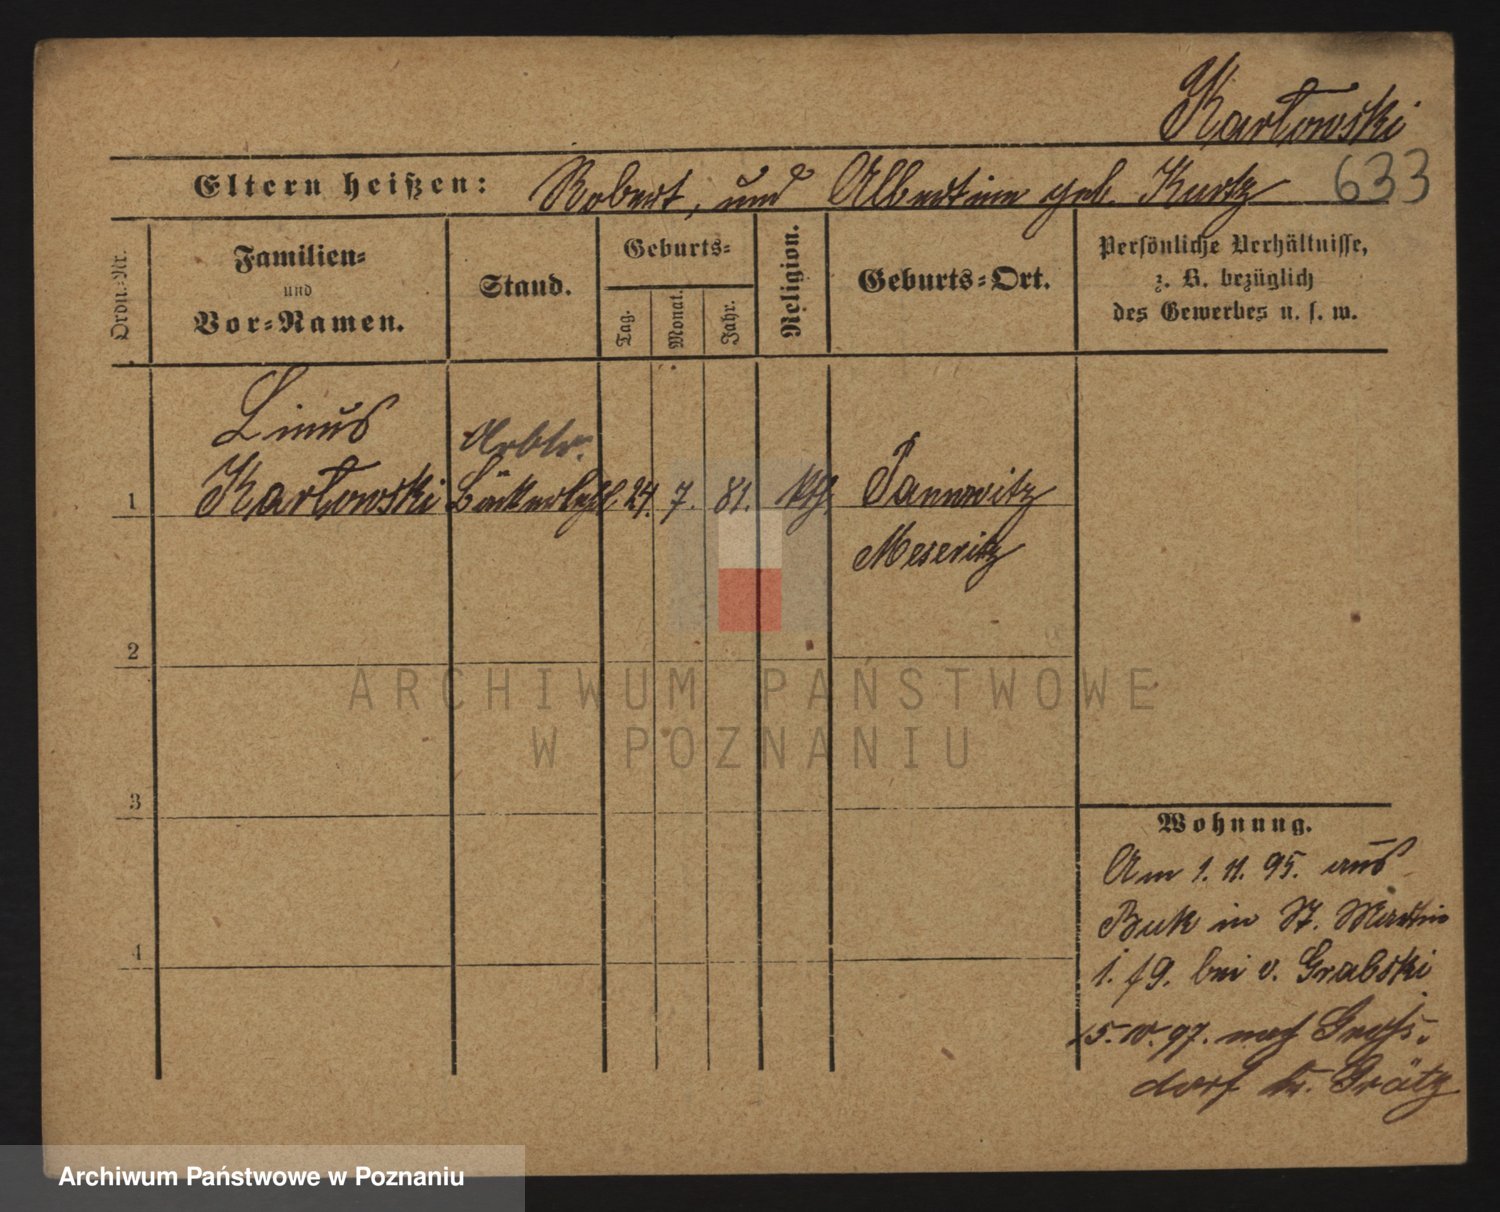 Kartowski
Eltern heißen: Robert, und Albertine geb. Kurtz 633
Ordn.-Nr.
Familien-
und
Vor-Namen.
Stand.
Geburts-
Tag.
Monat.
Jahr.
Religion.
Geburts-Ort.
Persönliche Verhältnisse,
z. B. bezüglich
des Gewerbes u. s. w.
Linus
Arbtr.
1 Kartowski Bäckerlehrl. 24. 7. 81. kth. Pannwitz
Meseritz
2
3
4
Wohnung.
Am 1. 11. 95. aus
Buk in St. Martin
bei v. Grabski
15. 10. 97. nach Gross-
dorf Kr. Grätz
ARCHIWUM PAŃSTWOWE
W POZNANIU
Archiwum Państwowe w Poznaniu